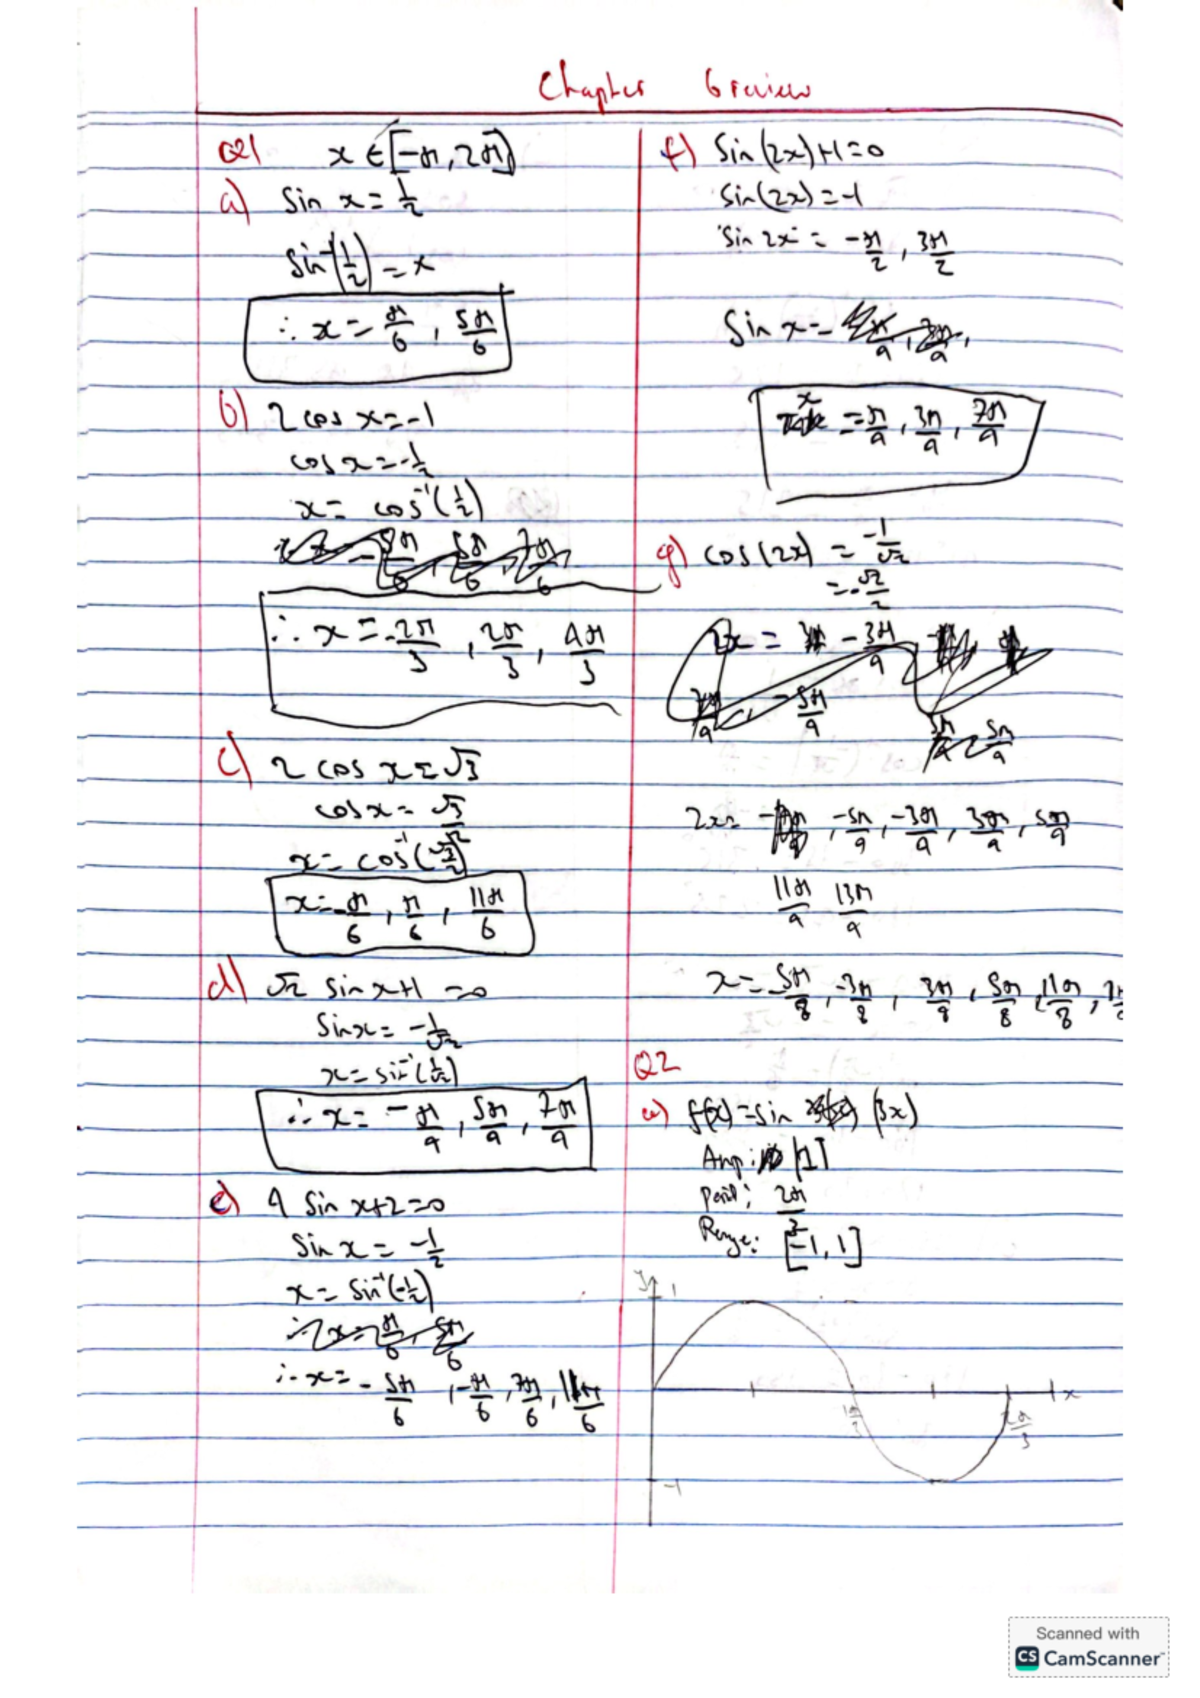 Chapter 6 review
Q1 x ∈ [-π, 2π]
a) Sin x = 1/2
Sin⁻¹(1/2) = x
∴ x = π/6, 5π/6
b) 2 cos x = -1
cos x = -1/2
x = cos⁻¹(1/2)
∴ x = -2π/3, 2π/3, 4π/3
c) 2 cos x = √3
cos x = √3/2
x = cos⁻¹(√3/2)
x = -π/6, π/6, 11π/6
d) √2 sin x+1 = 0
Sin x = -1/√2
x = sin⁻¹(1/√2)
∴ x = -π/4, 5π/4, 7π/4
e) 4 Sin x+2=0
Sin x = -1/2
x = Sin⁻¹(-1/2)
∴ x = -5π/6, -π/6, 7π/6, 11π/6
f) Sin(2x)+1=0
Sin(2x) = -1
Sin 2x = -π/2, 3π/2
Sin x =
x = π/4, 3π/4, 7π/4
g) cos(2x) = -1/√2
= -√2/2
2x = -3π/4
5π/4
2x = -5π/4, -3π/4, 3π/4, 5π/4
11π/4 13π/4
x = -5π/8, -3π/8, 3π/8, 5π/8, 11π/8,
Q2
a) f(x) = sin (3x)
Amp: |1|
Period: 2π/3
Range: [-1, 1]
y 1
x
π/3
2π/3
-1
Scanned with
CS CamScanner